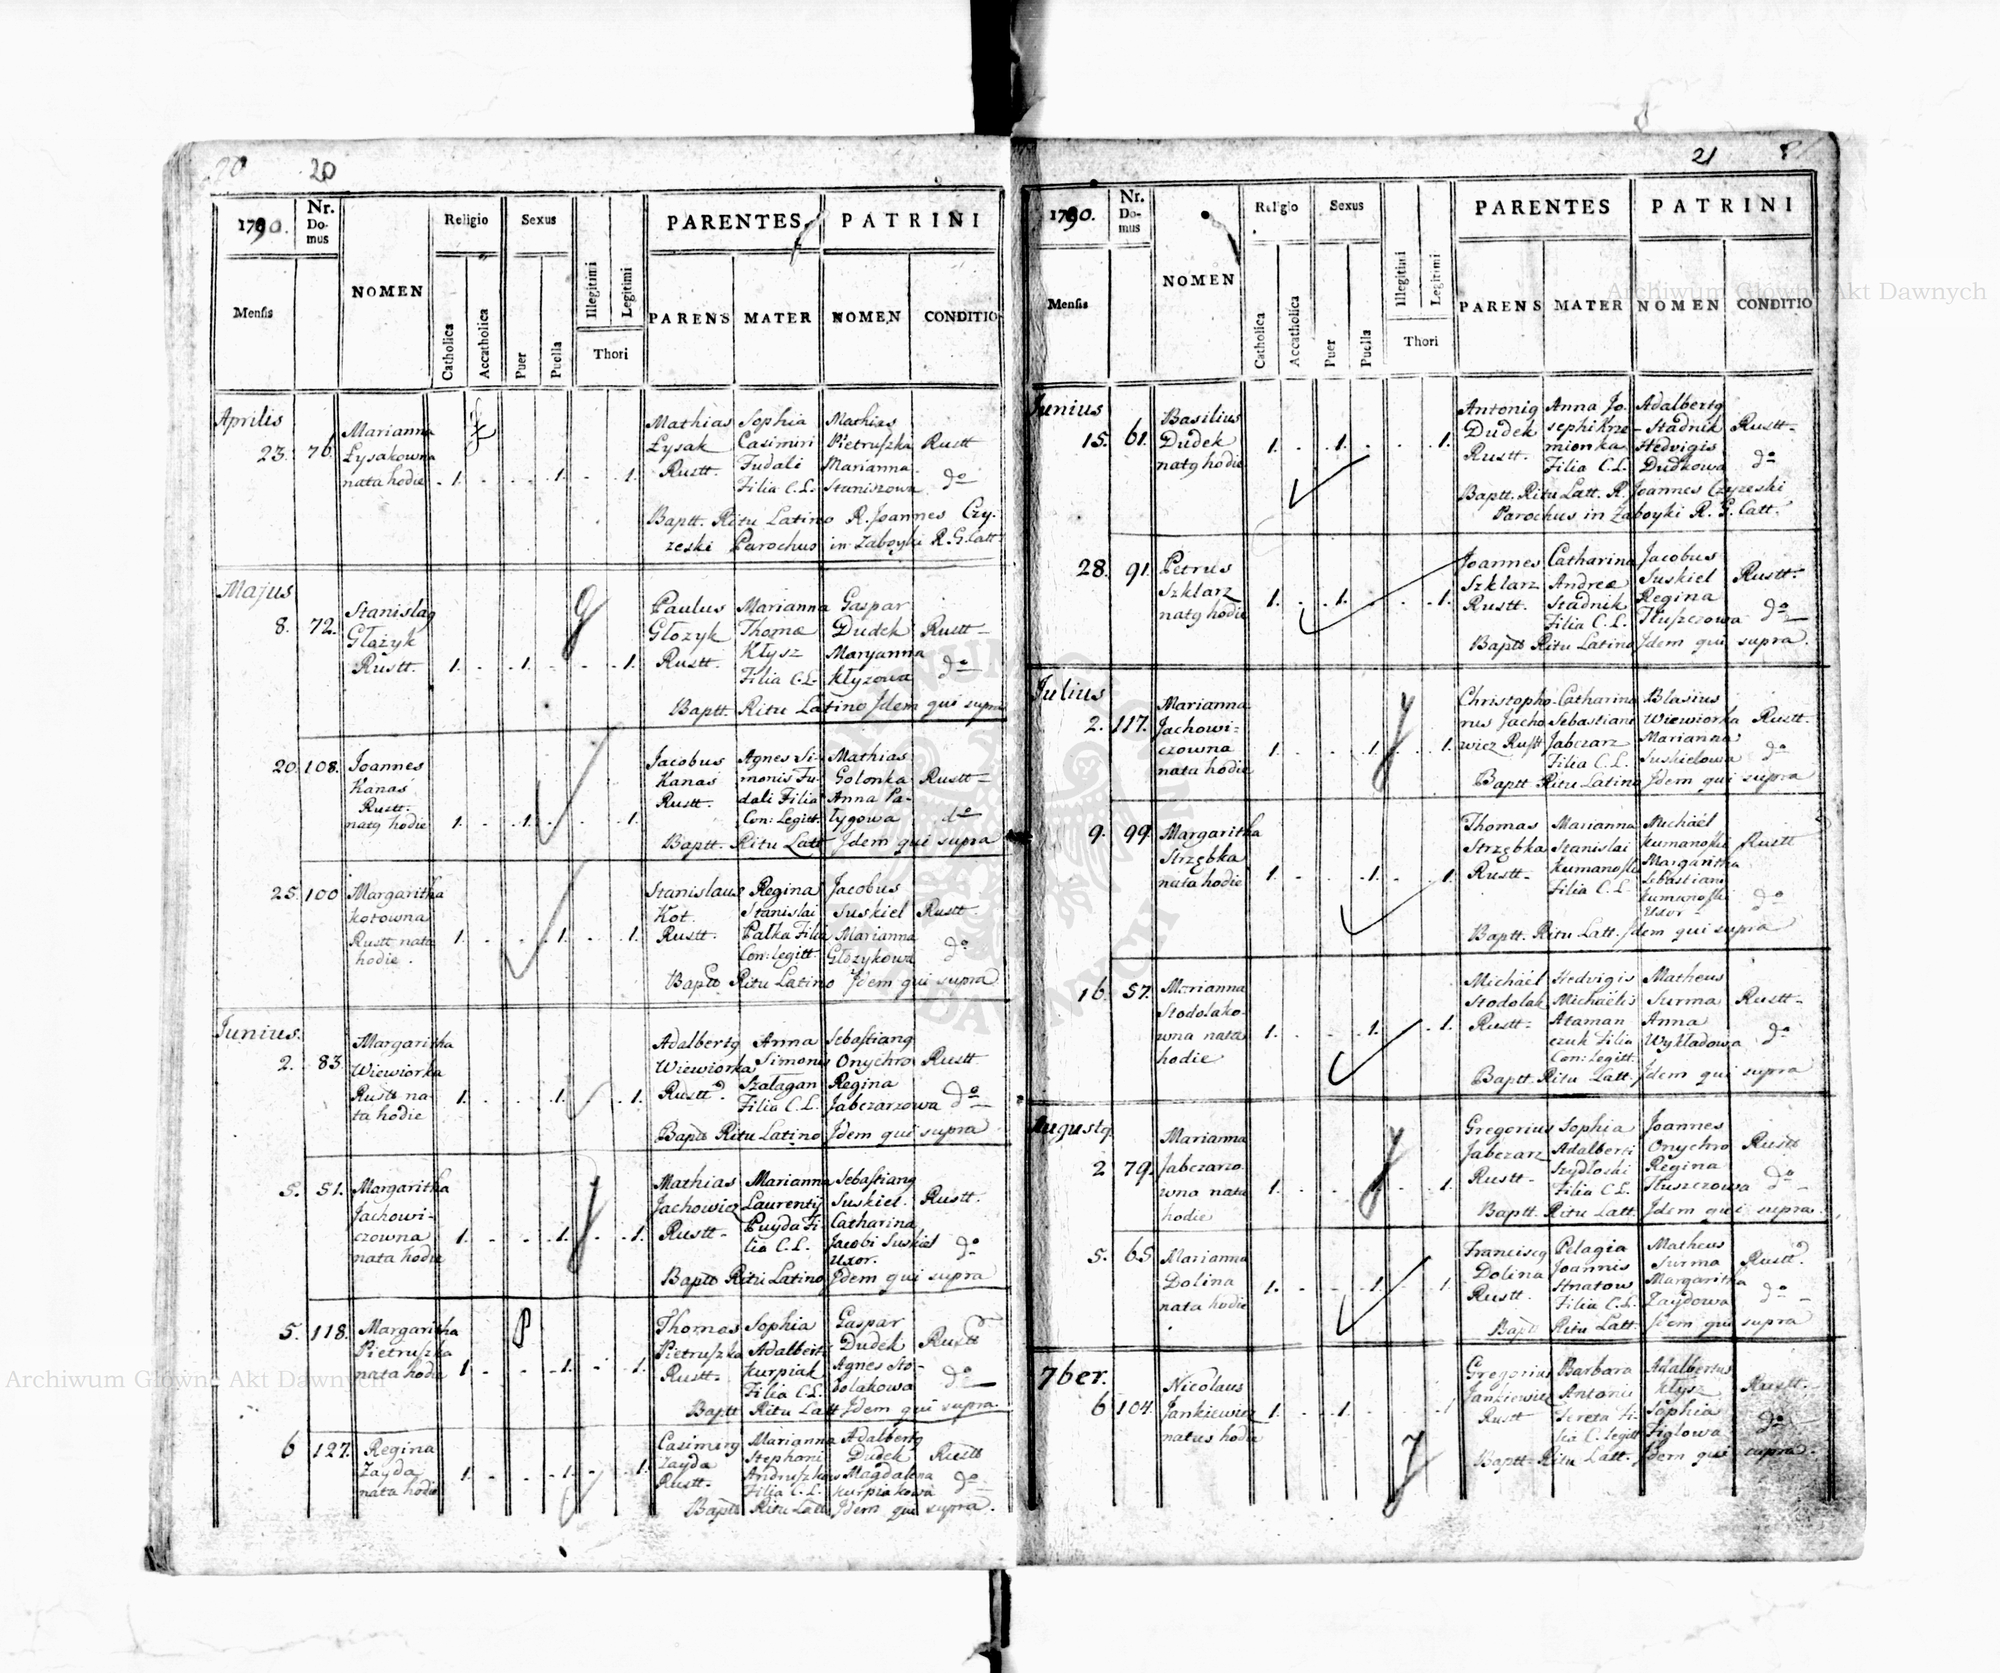 20 20
1790. Nr. Do- mus NOMEN Religio Sexus PARENTES PATRINI
Mensis Catholica Accatholica Puer Puella Illegitimi Legitimi Thori PARENS MATER NOMEN CONDITIO
Aprilis
23. 76. Marianna Łysakowna nata hodie 1. 1. 1.
Mathias Łysak Rustt.
Sophia Casimiri Fudali Filia C.L.
Mathias Pietruszka Rustt
Marianna Staniszowa do
Baptt. Ritu Latino R. Joannes Czy-
zeski Parochus in Zaboyki R. G. Catt.
Majus
8. 72. Stanislaq Głażyk Rustt. 1. 1. 1.
Paulus Głozyk Rustt.
Marianna Thomæ Kłysz Filia C.L.
Gaspar Dudek Rustt
Maryanna Kłyzowa do
Baptt. Ritu Latino Jdem qui supra
20. 108. Joannes Kanas Rustt. natq hodie 1. 1. 1.
Jacobus Kanas Rustt.
Agnes Si- monis Fu- dali Filia Con: Legitt.
Mathias Golonka Rustt
Anna Pa- lygowa do
Baptt. Ritu Latt Jdem qui supra
25. 100 Margaritha Kotowna Rustt nata hodie. 1. 1. 1.
Stanislaus Kot. Rustt.
Regina Stanislai Pałka Filia Con: legitt.
Jacobus Suskiel Rustt.
Marianna Głozykowa do
Bapto Ritu Latino Jdem qui supra
Junius.
2. 83. Margaritha Wiewiorka Rustt na- ta hodie 1. 1. 1.
Adalbertq Wiewiorka Rustt.
Anna Simonis Szałagan Filia C.L.
Sebastianq Onychro Rustt
Regina Jabczarzowa do
Bapto Ritu Latino Jdem qui supra
5. 51. Margaritha Jachowi- czowna nata hodie 1. 1. 1.
Mathias Jachowicz Rustt.
Marianna Laurentij Puyda Fi- lia C.L.
Sebastianq Suskiel. Rustt.
Catharina Jacobi Suskiel Uxor. do
Bapto Ritu Latino Jdem qui supra
5. 118. Margaritha Pietruszka nata hodie 1. 1. 1.
Thomas Pietruszka Rustt.
Sophia Adalberti Kurpiak Filia C.L.
Gaspar Dudek Rustt
Agnes Sto- dolakowa do
Baptt Ritu Latt Jdem qui supra.
6 127. Regina Zayda nata hodie 1. 1. 1.
Casimirq Zayda Rustt.
Marianna Stephani Filia C.L.
Adalbertq Dudek Rustt
Magdalena Kurpiakowa do
Bapto Ritu Latt Jdem qui supra.
21
1790. Nr. Do- mus NOMEN Religio Sexus PARENTES PATRINI
Mensis Catholica Accatholica Puer Puella Illegitimi Legitimi Thori PARENS MATER NOMEN CONDITIO
Junius
15. 61. Basilius Dudek natq hodie 1. 1. 1.
Antoniq Dudek Rustt.
Anna Jo- sephi Krze- mionka Filia C.L.
Adalbertq Stadnik Rustt
Hedvigis Dudkowa do
Baptt. Ritu Latt. R. Joannes Czyzeski
Parochus in Zaboyki R. G. Catt.
28. 91. Petrus Szklarz natq hodie 1. 1. 1.
Joannes Szklarz Rustt.
Catharina Andreæ Stadnik Filia C.L.
Jacobus Suskiel Rustt.
Regina Tłuszczowa do
Bapto Ritu Latino Jdem qui supra.
Julius
2. 117. Marianna Jachowi- czowna nata hodie 1. 1. 1.
Christopho- rus Jacho- wicz Rustt
Catharina Sebastiani Jabczarz Filia C.L.
Blasius Wiewiorka Rustt.
Marianna Suskielowa do
Baptt Ritu Latino Jdem qui supra
9. 99. Margaritha Strzębka nata hodie 1. 1. 1.
Thomas Strzębka Rustt.
Marianna Stanislai Kumanoski Filia C.L.
Michaël Kumanoski Rustt
Margaritha Sebastiani Kumanoski Uxor do
Baptt. Ritu Latt. Jdem qui supra
16. 57. Marianna Stodolako- wna nata hodie 1. 1. 1.
Michaël Stodolak Rustt.
Hedvigis Michaëlis Ataman- czuk Filia Con: Legitt.
Matheus Surma Rustt.
Anna Wykładowa do
Baptt. Ritu Latt. Jdem qui supra
Augustq.
2 79. Marianna Jabczarzo- wna nata hodie 1. 1.
Gregorius Jabczarz Rustt.
Sophia Adalberti Szydłoski Filia C.L.
Joannes Onychro Rustt
Regina Tłuszczowa do
Baptt. Ritu Latt. Jdem qui supra.
5. 65. Marianna Dolina nata hodie 1. 1. 1.
Franciscq Dolina Rustt.
Pelagia Joannis Hnatow Filia C.L.
Matheus Surma Rustt.
Margaritha Zaydowa do
Bapto Ritu Latt. Jdem qui supra
7ber.
6 104. Nicolaus Jankiewicz natus hodie 1. 1. 1
Gregorius Jankiewicz Rustt
Barbara Antonii Tereta Fi- lia C. legitt
Adalbertus Kłysz Rustt.
Sophia Figlowa do
Baptt. Ritu Latt. Jdem qui supra.
Archiwum Główne Akt Dawnych
Archiwum Główne Akt Dawnych